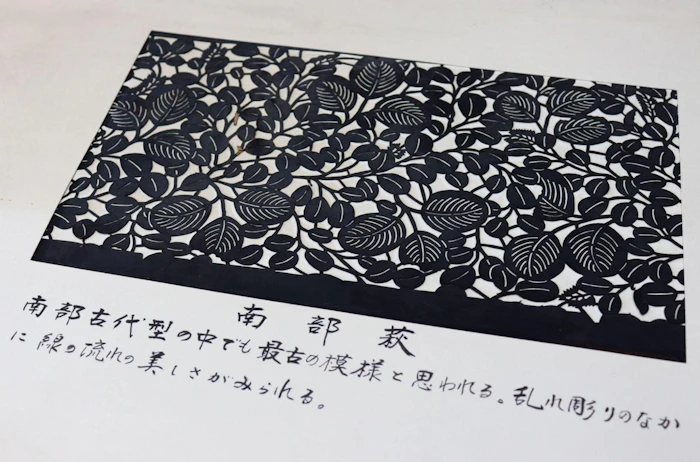 南部萩
南部古代型の中でも最古の模様と思われる。乱れ彫りのなか
に線の流れの美しさがみられる。